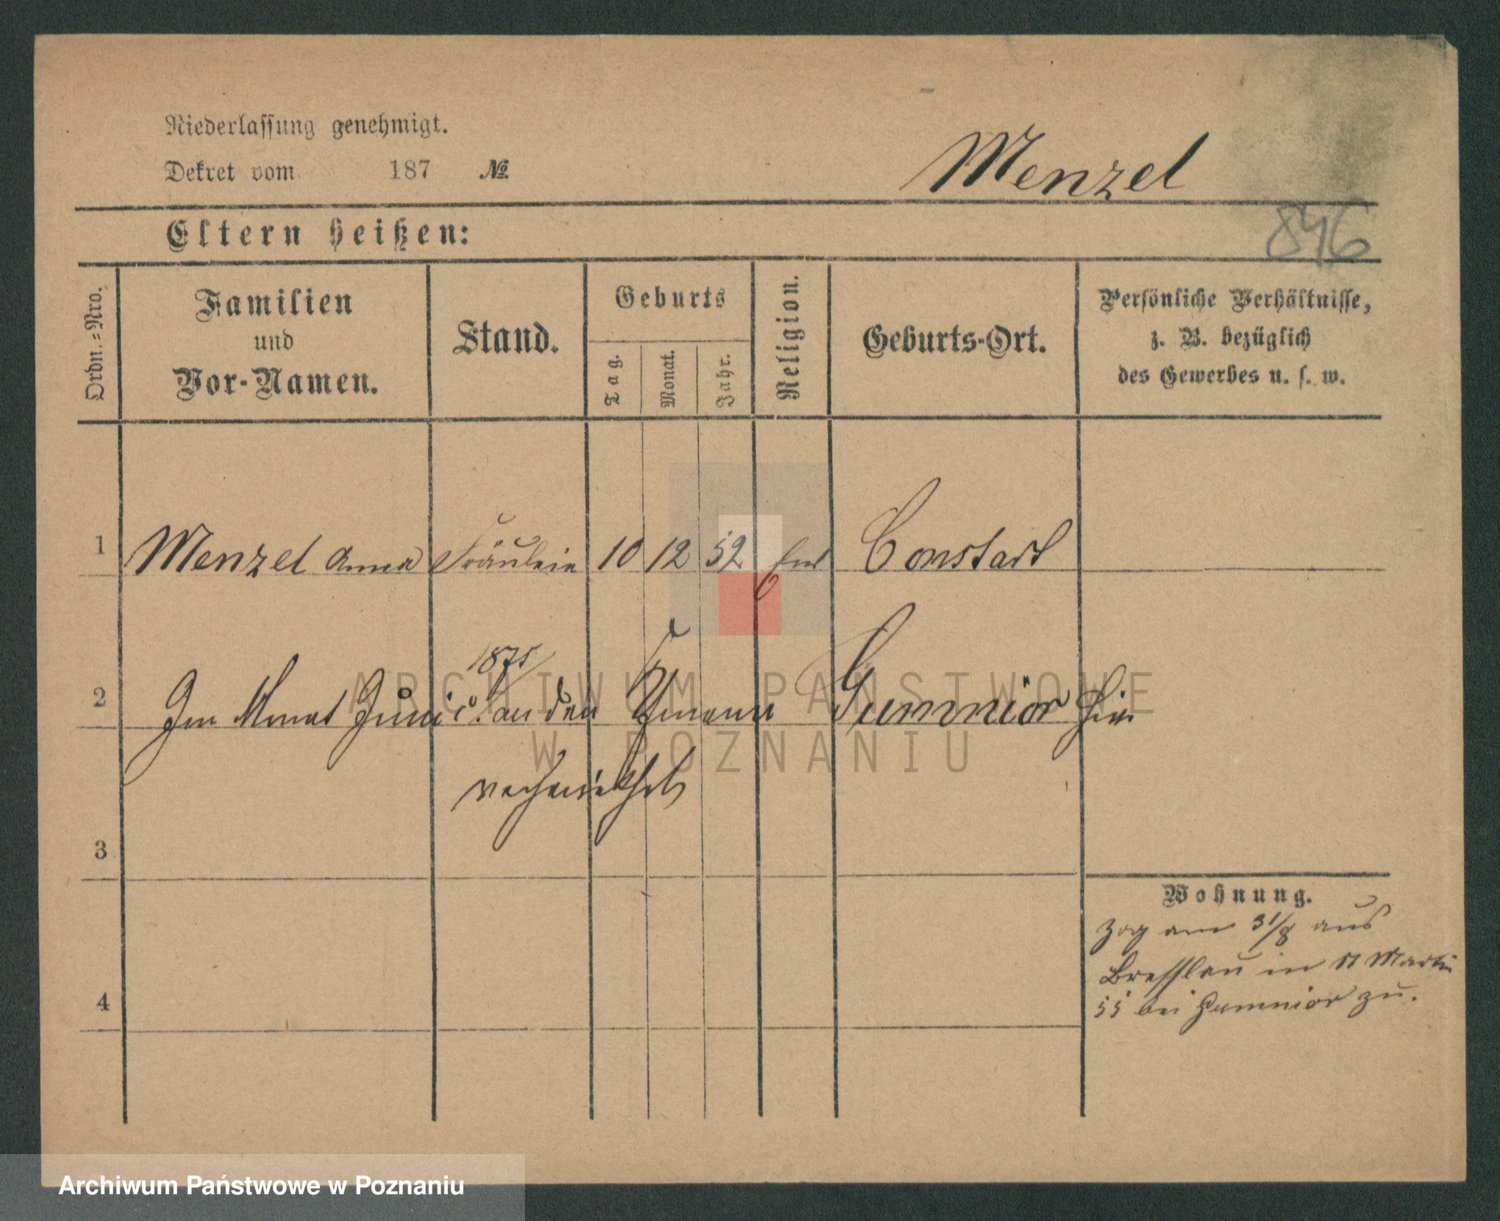 Niederlassung genehmigt.
Dekret vom 187 №
Menzel
846
Eltern heißen:
Ordn.-Nro.
Familien
und
Vor-Namen.
Stand.
Geburts
Tag.
Monat.
Jahr.
Religion.
Geburts-Ort.
Persönliche Verhältnisse,
z. B. bezüglich
des Gewerbes u. s. w.
1 Menzel Anna Fräulein 10 12 52 Constadt
2
1875
Im Monat Juni c. an den Gumnior hier
3
4
Wohnung.
zog am 31/8 aus
Bresslau in St Martin
55 bei Gumnior zu.
ARCHIWUM PAŃSTWOWE
W POZNANIU
Archiwum Państwowe w Poznaniu